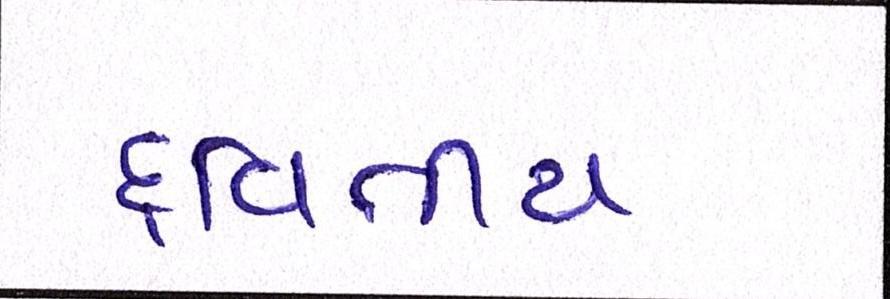 દ્વિતીય